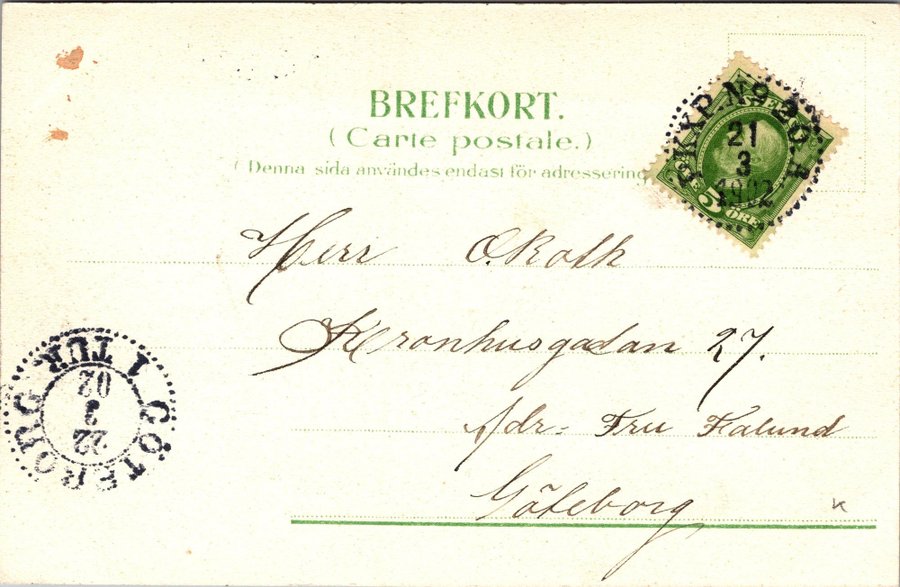 BREFKORT.
(Carte postale.)
(Denna sida användes endast för adressering
PKXP. No 20. A
21
3
1902
5 ÖRE
Herr O. Roth
Kronhusgatan 27.
Adr: Fru Halund
Göteborg
GÖTEBORG 1 TUR
22
3
02